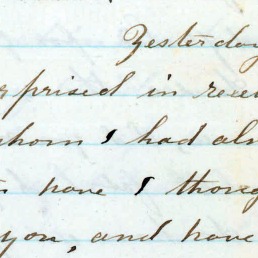 Yesterday
rprised in rece
whom I had alm
to have I thoug
you, and have